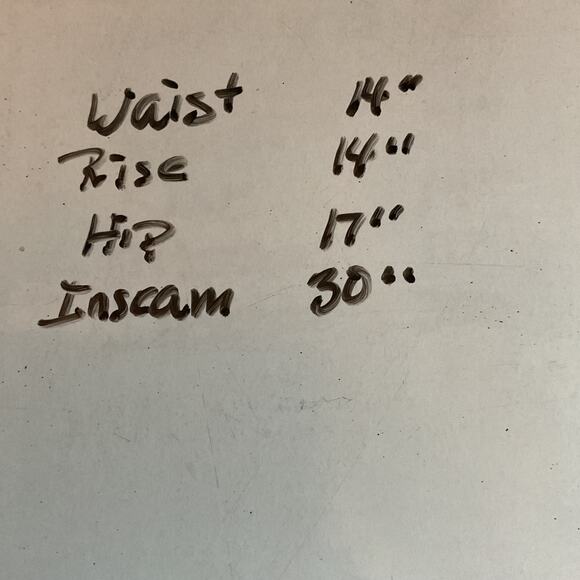 Waist 14"
Rise 14"
Hip 17"
Inseam 30"